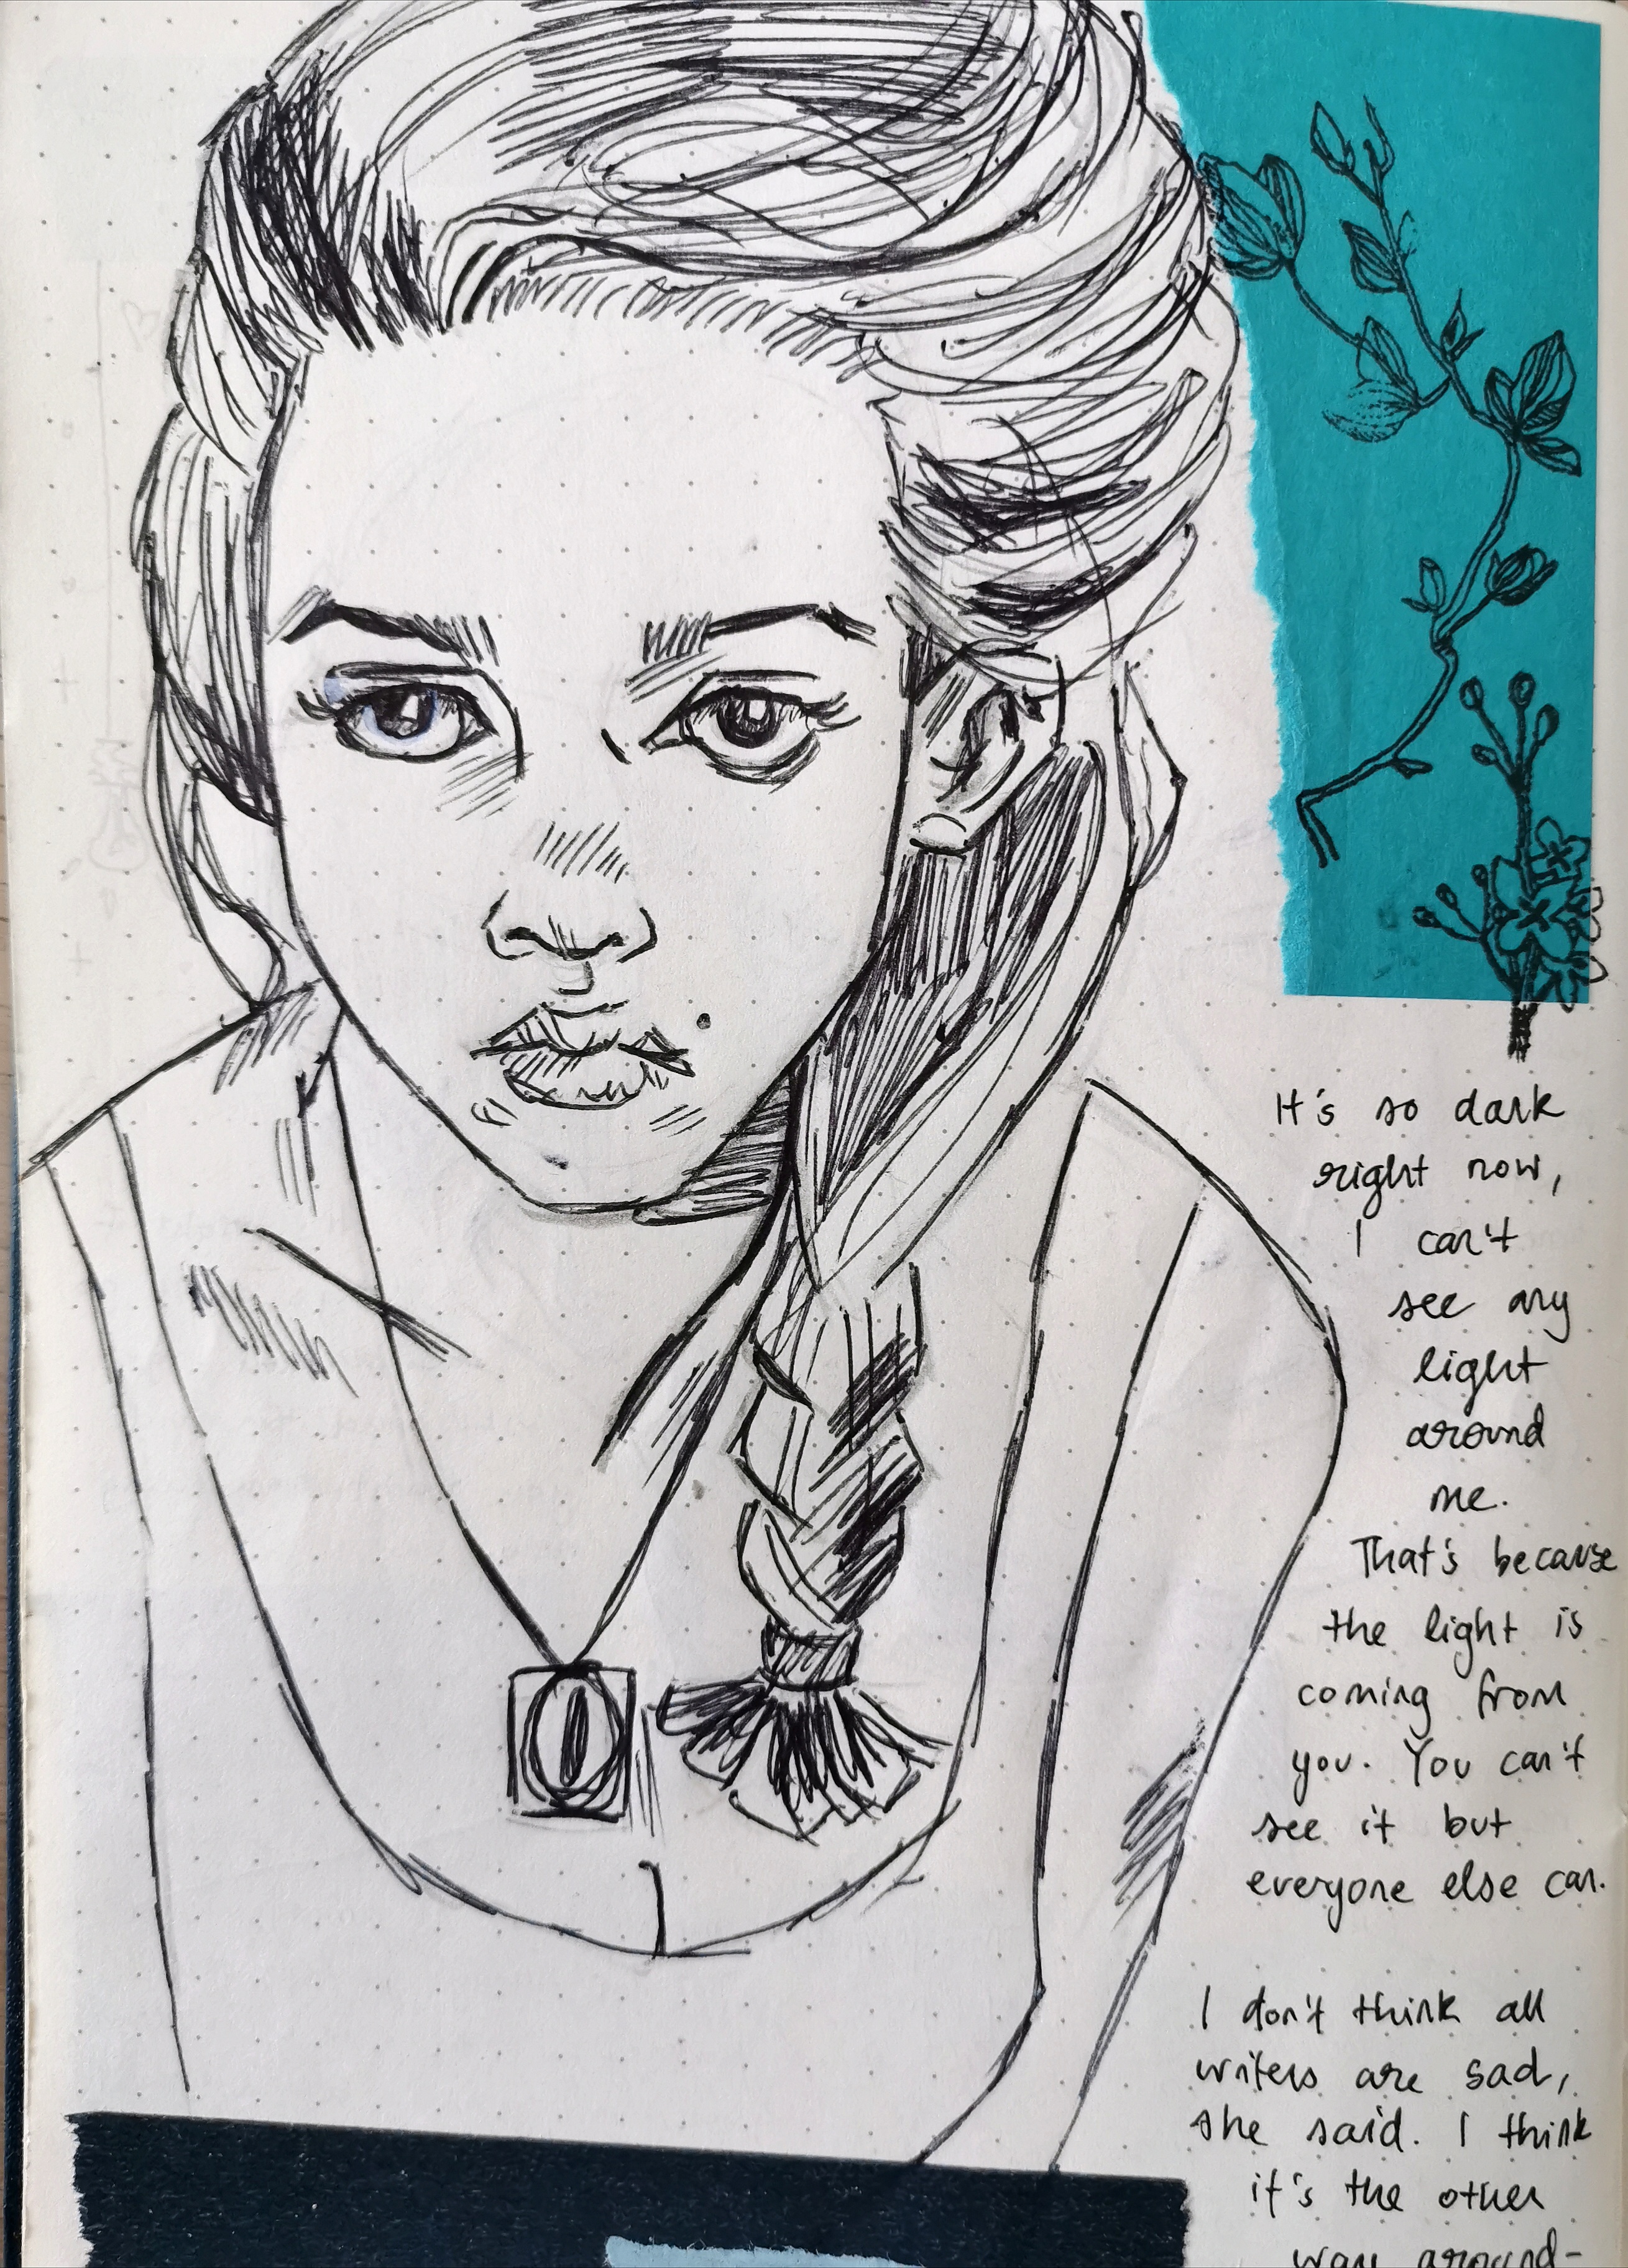 It's so dark
right now,
I can't
see any
light
around
me.
That's because
the light is
coming from
you. You can't
see it but
everyone else can.
I don't think all
writers are sad,
she said. I think
it's the other
way around-